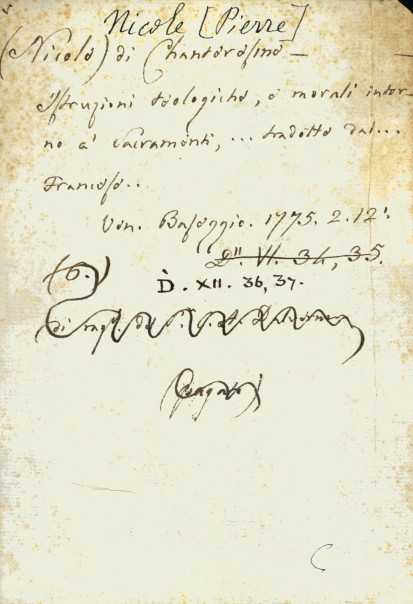 Nicole [Pierre]
(Nicole) di Chanteresme —
Istruzioni teologiche, e morali intor-
no a' Sacramenti, ... tradotte dal ...
Francese..
Ven. Baseggio. 1775. 2. 12.º
D.'' VI. 34, 35.
D. XII. 36, 37.
di